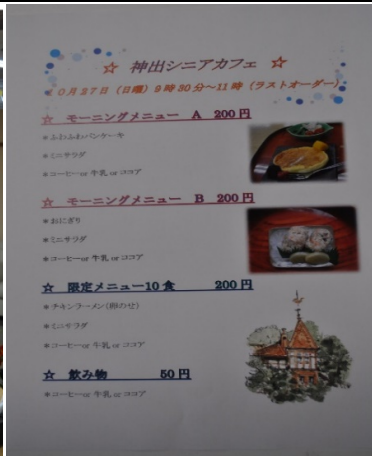 ☆ 神出シニアカフェ ☆
10月27日(日曜)9時30分～11時(ラストオーダー)
☆ モーニングメニュー A 200円
*ふわふわパンケーキ
*ミニサラダ
*コーヒーor 牛乳 or ココア
☆ モーニングメニュー B 200円
*おにぎり
*ミニサラダ
*コーヒーor 牛乳 or ココア
☆ 限定メニュー10食 200円
*チキンラーメン(卵のせ)
*ミニサラダ
*コーヒーor 牛乳 or ココア
☆ 飲み物 50円
*コーヒーor 牛乳 or ココア